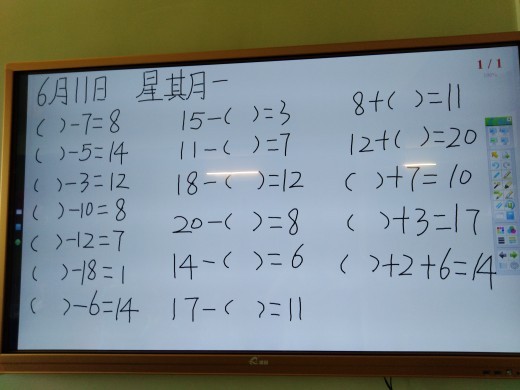 1/1
6月11日 星期一
( )-7=8
( )-5=14
( )-3=12
( )-10=8
( )-12=7
( )-18=1
( )-6=14
15-( )=3
11-( )=7
18-( )=12
20-( )=8
14-( )=6
17-( )=11
8+( )=11
12+( )=20
( )+7=10
( )+3=17
( )+2+6=14